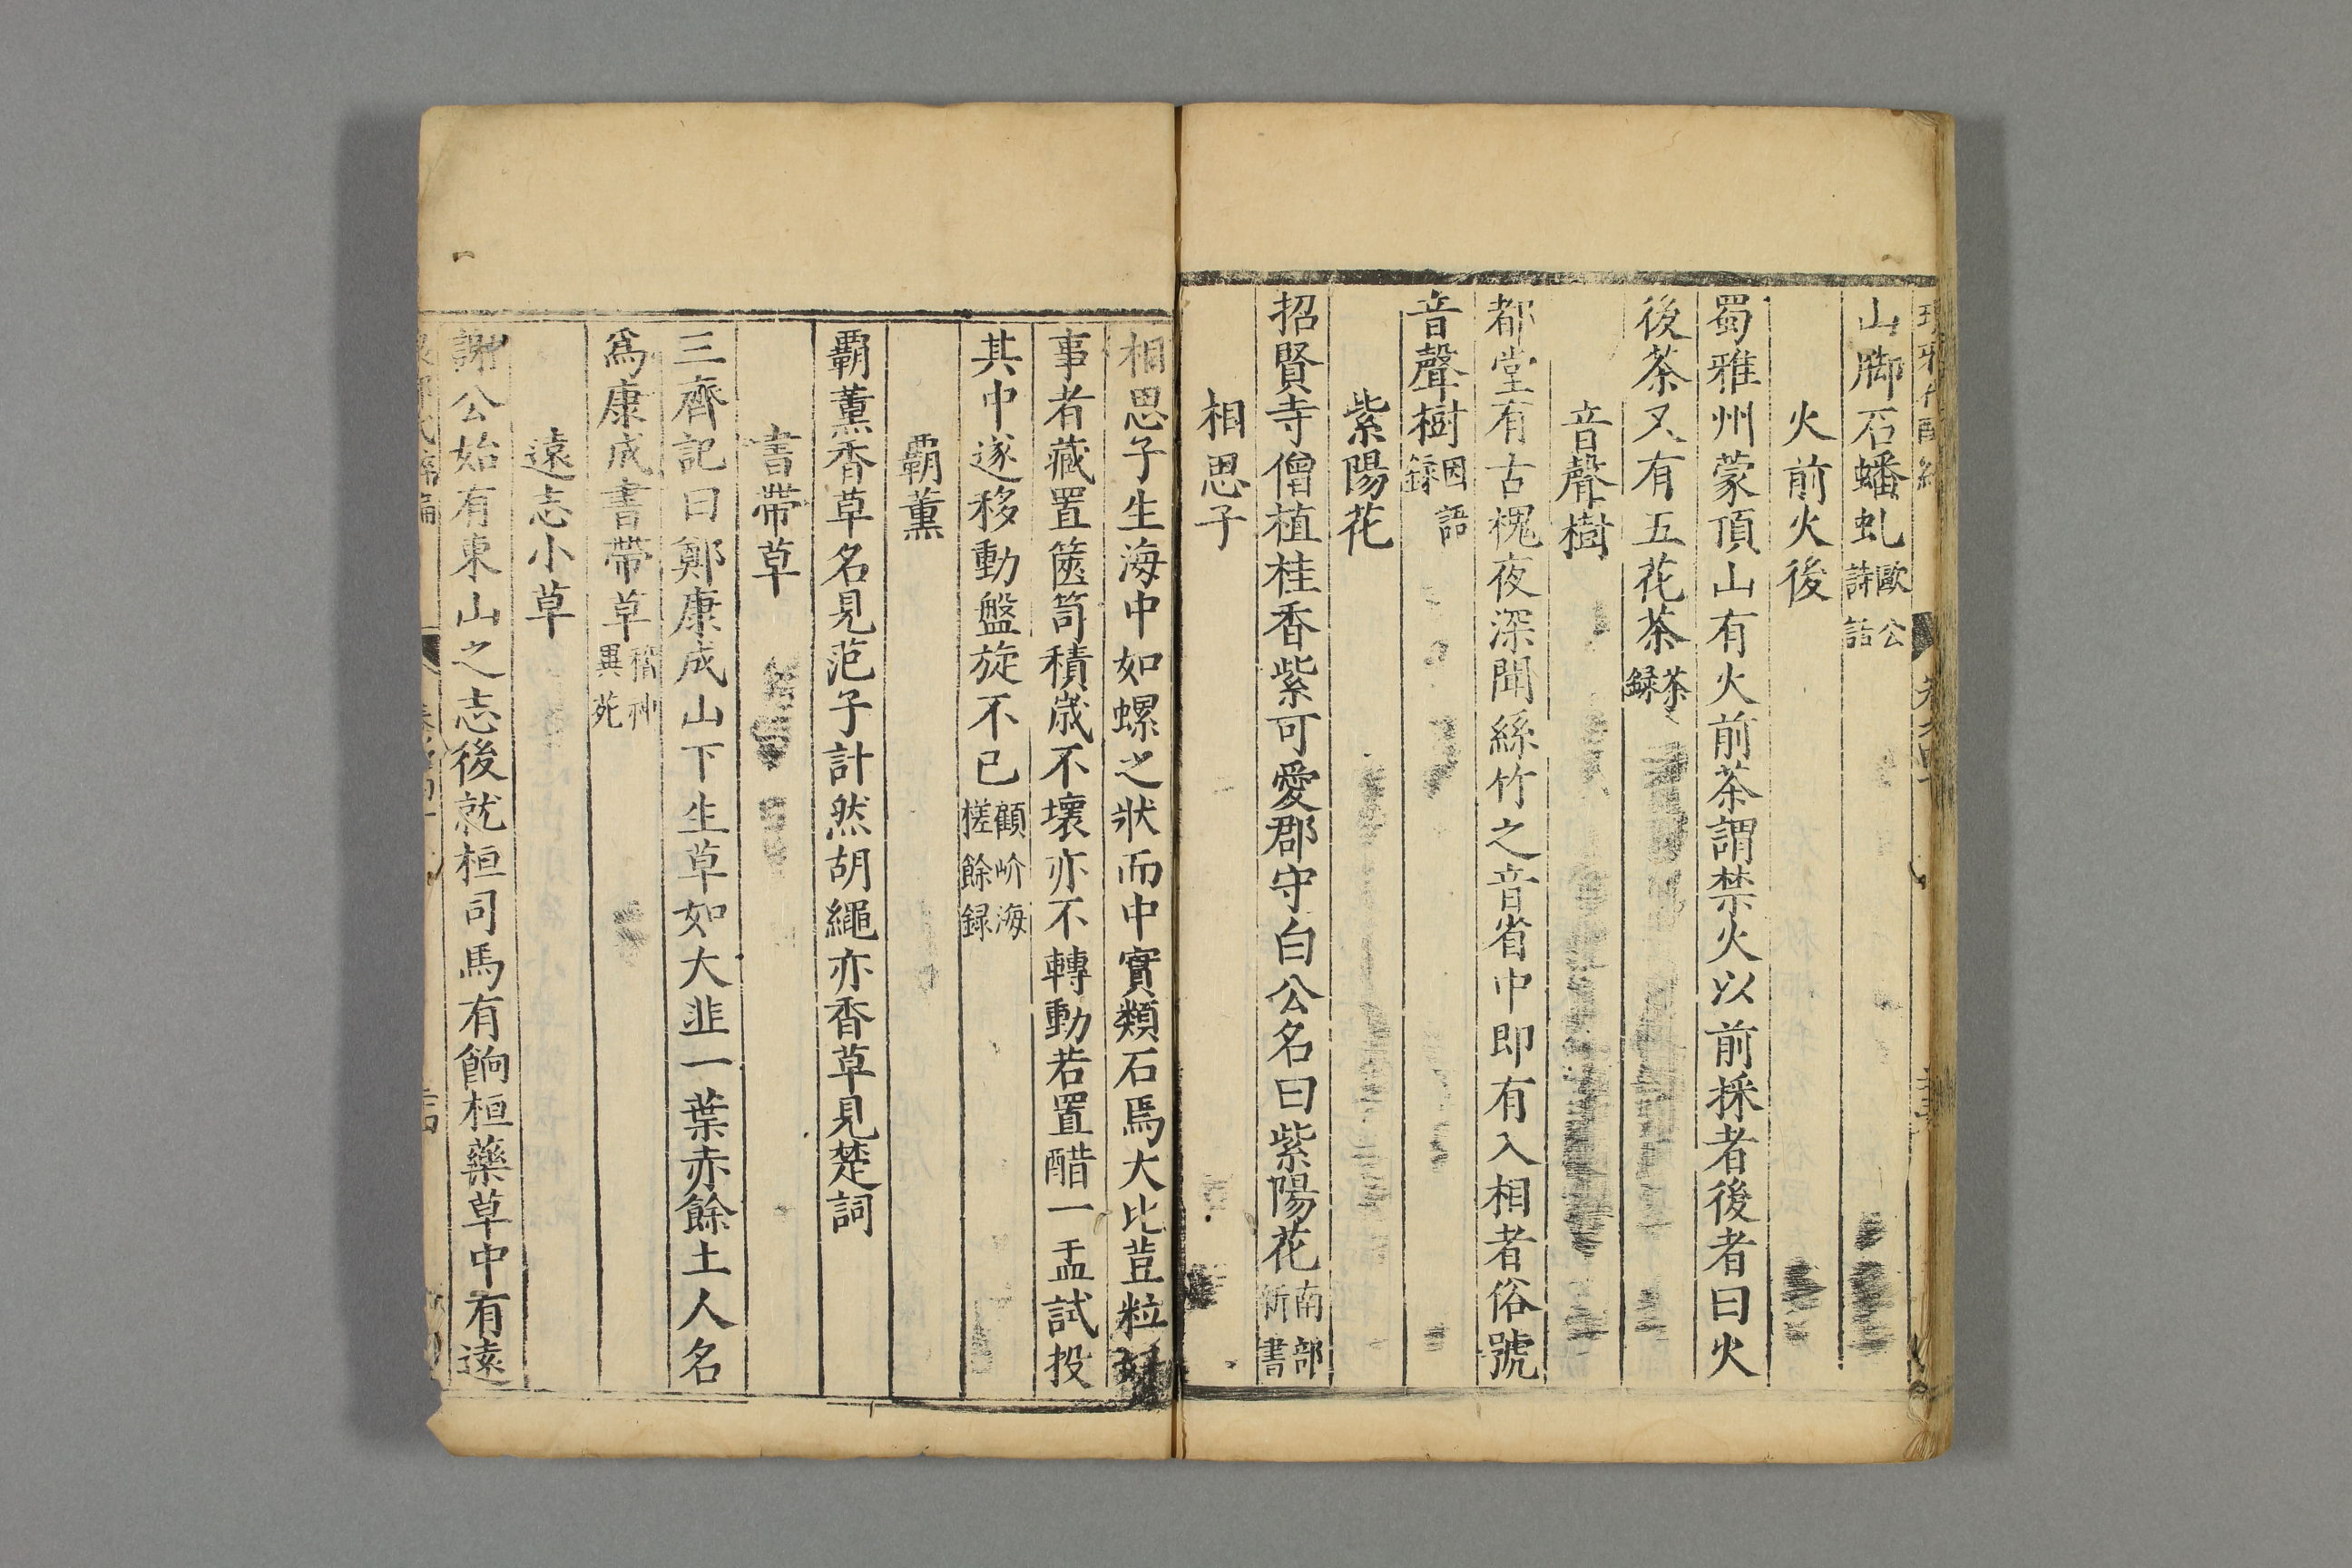 山脚石蟠虬歐公詩話
火前火後
蜀雅州蒙頂山有火前茶謂禁火以前採者後者曰火
後茶又有五花茶茶録
音聲樹
都堂有古槐夜深聞絲竹之音省中即有入相者俗號
音聲樹因語録
紫陽花
招賢寺僧植桂香紫可愛郡守白公名曰紫陽花南部新書
相思子
相思子生海中如螺之狀而中實類石焉大比荳粒好
事者藏置篋笥積歲不壞亦不轉動若置醋一盂試投
其中遂移動盤旋不已顧岕海槎餘録
覇薰
覇薰香草名見范子計然胡繩亦香草見楚詞
書帶草
三齊記曰鄭康成山下生草如大韭一葉赤餘土人名
爲康成書帶草稽神異苑
遠志小草
謝公始有東山之志後就桓司馬有餉桓藥草中有遠